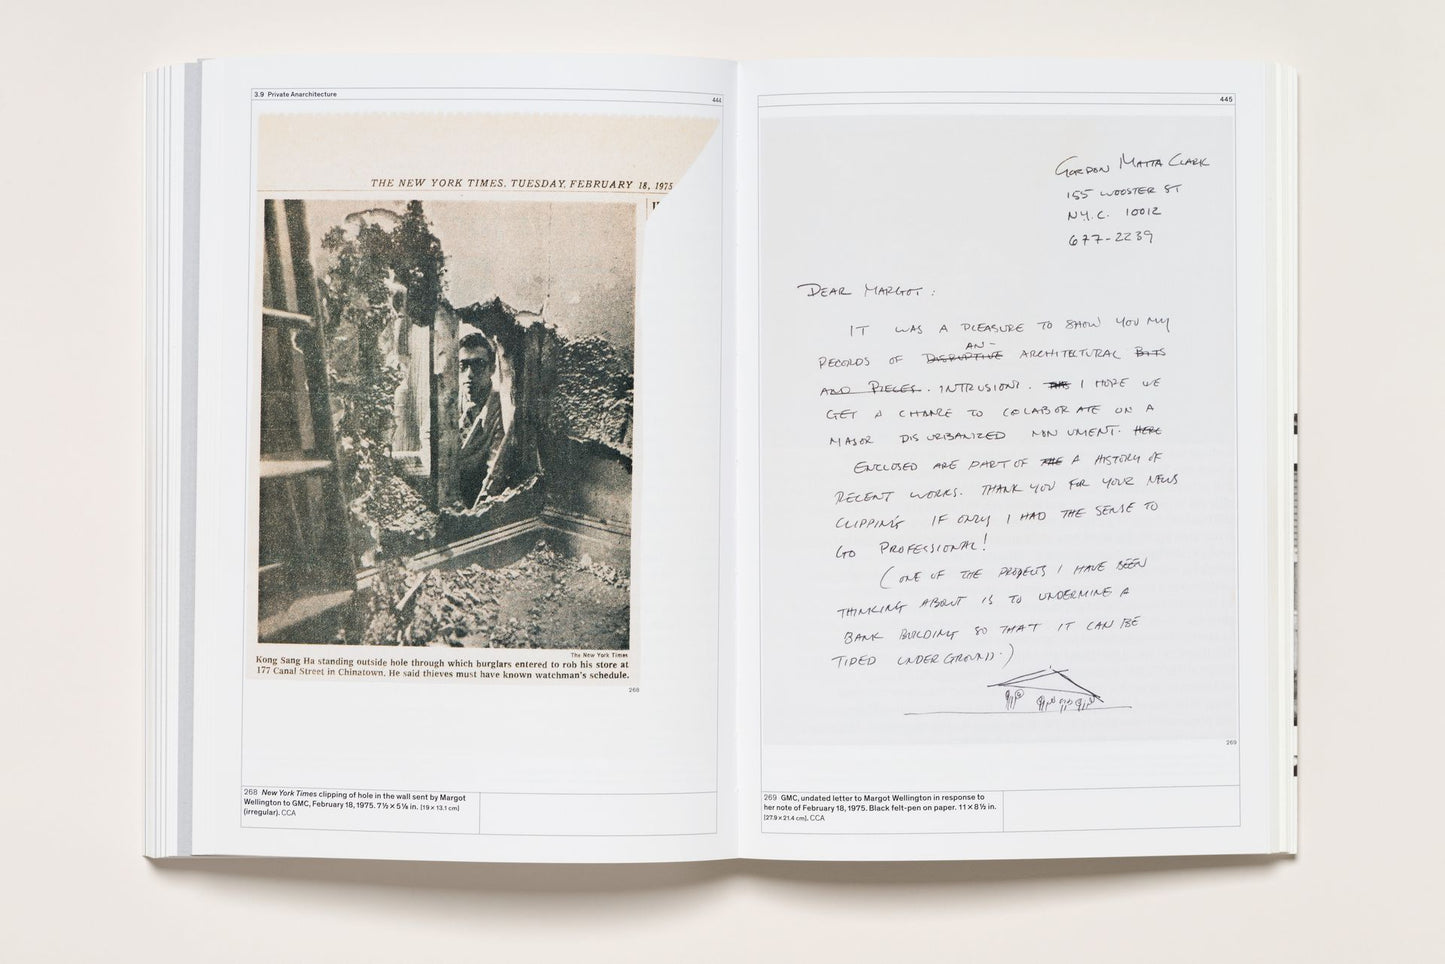 3.9 Private Anarchitecture
444
THE NEW YORK TIMES, TUESDAY, FEBRUARY 18, 1975
The New York Times
Kong Sang Ha standing outside hole through which burglars entered to rob his store at
177 Canal Street in Chinatown. He said thieves must have known watchman's schedule.
268
268 New York Times clipping of hole in the wall sent by Margot
Wellington to GMC, February 18, 1975. 7½ × 5⅛ in. [19 × 13.1 cm]
(irregular). CCA
445
GORDON MATTA CLARK
155 WOOSTER ST
N.Y.C. 10012
677-2239
DEAR MARGOT:
IT WAS A PLEASURE TO SHOW YOU MY
AN-
RECORDS OF DISRUPTIVE ARCHITECTURAL BITS
AND PIECES. INTRUSIONS. I HOPE WE
GET A CHANCE TO COLABORATE ON A
MAJOR DISURBANIZED MONUMENT. HERE
ENCLOSED ARE PART OF THE A HISTORY OF
RECENT WORKS. THANK YOU FOR YOUR NEWS
CLIPPING IF ONLY I HAD THE SENSE TO
GO PROFESSIONAL!
(ONE OF THE PROJECTS I HAVE BEEN
THINKING ABOUT IS TO UNDERMINE A
BANK BUILDING SO THAT IT CAN BE
TIDED UNDERGROUND.)
269
269 GMC, undated letter to Margot Wellington in response to
her note of February 18, 1975. Black felt-pen on paper. 11 × 8½ in.
[27.9 × 21.4 cm]. CCA